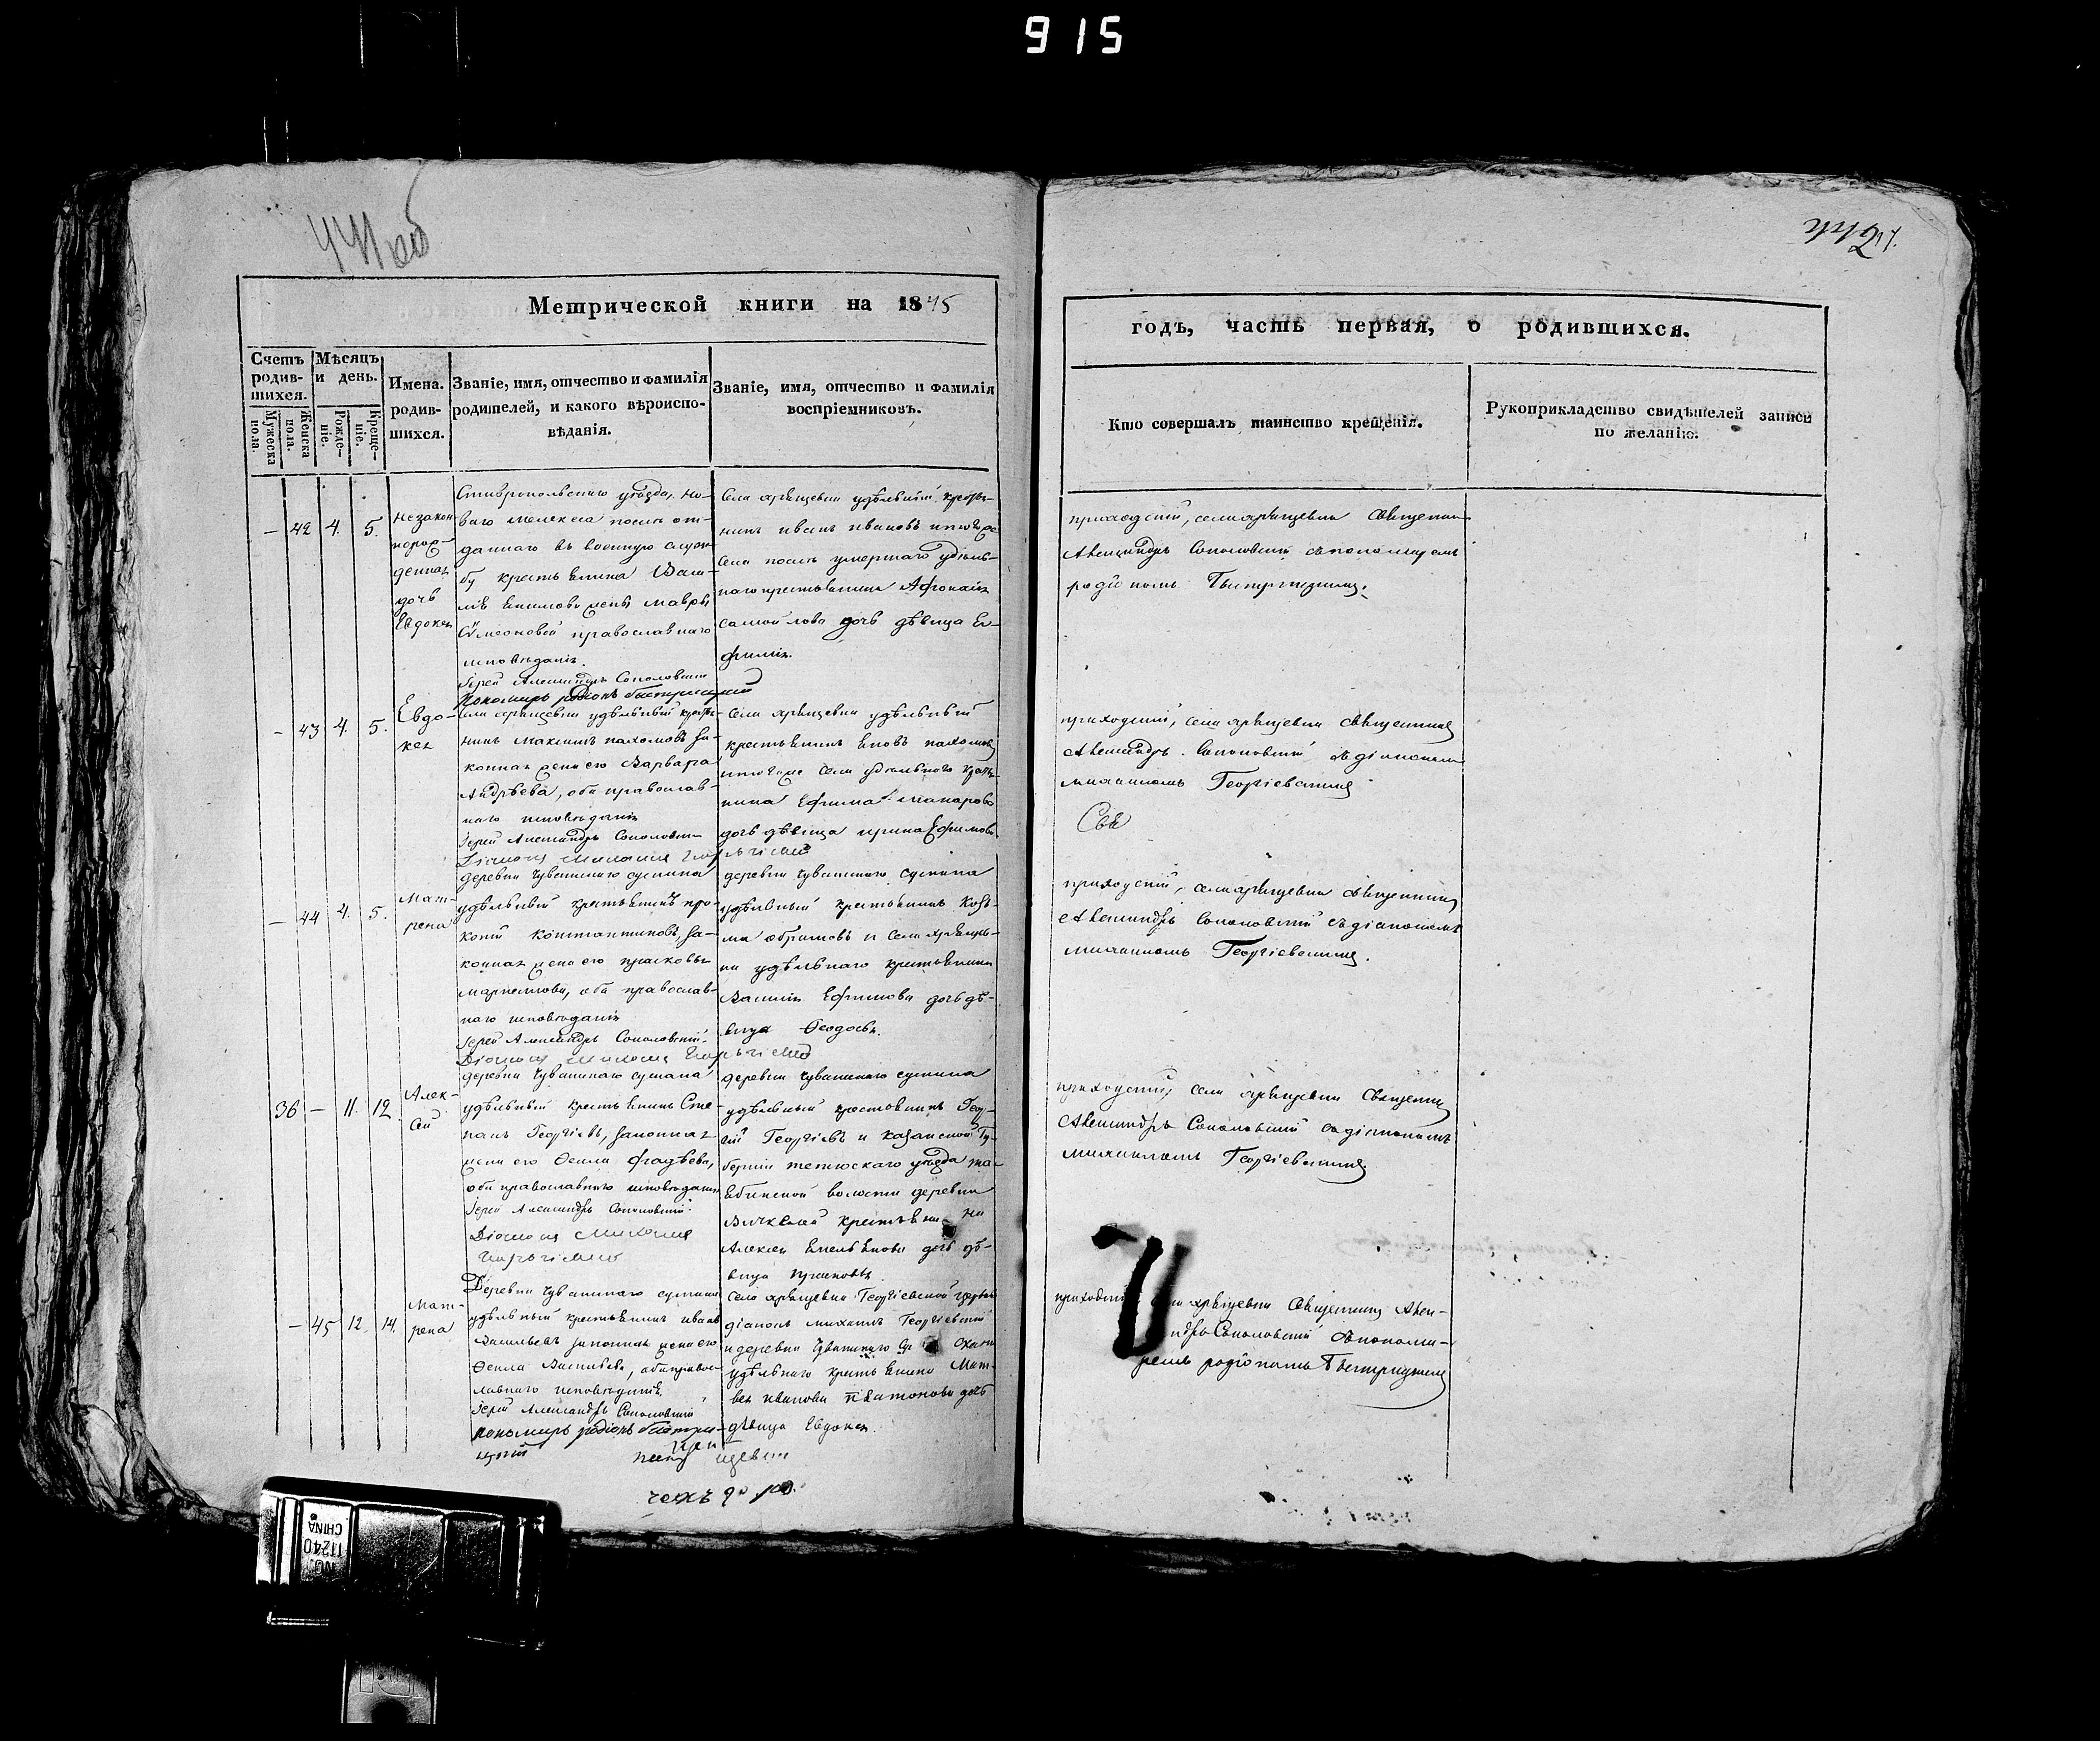 915
441 об
442
Метрической книги на 1845
Счетъ родив-шихся.
Мужеска пола.
Женска пола.
Мѣсяцъ и день.
Рожде-ніе.
Креще-ніе.
Имена. родив-шихся.
Званіе, имя, отчество и фамилія
родителей, и какого вѣроиспо-
вѣданія.
Званіе, имя, отчество и фамилія
воспріемниковъ.
— 42 4. 5.
незакон-
норож-
денная
дочь
Евдокея
Ставропольскаго уѣзда, но-
ваго мелекеса послѣ от-
даннаго въ военную служ-
бу крестьянина Васи-
лія жены мавры
Сѵмеоновой православнаго
исповѣданія.
Іерей Александръ Соколовскій
Пономарь родіонъ быстрицкій
села удѣльный крестья-
нинъ иванъ ивановъ и тогоже
села послѣ умершаго удѣль-
наго крестьянина Афонасія
самойлова дочь дѣвица Ев-
фимія.
— 43 4. 5.
Евдо-
кея
села удѣльный крестья-
нинъ максимъ пахомовъ, за-
конная жена его Варвара
Андрѣева, оба православ-
наго исповѣданія
Іерей Александръ Соколовскій
Діаконъ Михаилъ Георгіевскій
села удѣльный
крестьянинъ пахомовъ
и тогоже села удѣльнаго крестья-
нина Ефима макарова
дочь дѣвица ирина Ефимова
— 44 4. 5.
Мат-
рена
деревни Чувашскаго сускана
удѣльный крестьянинъ про-
копій константиновъ, за-
конная жена его прасковья
маркеллова, оба православ-
наго исповѣданія
Іерей Александръ Соколовскій.
Діаконъ Михаилъ Георгіевскій
деревни чувашскаго сускана
удѣльный крестьянинъ Козь-
ма абрамовъ и села
удѣльнаго крестьянина
Василія Ефимова дочь дѣ-
вица Ѳеодосья.
36 — 11. 12
Алек-
сей
деревни чувашскаго сускана
удѣльный крестьянинъ Сте-
панъ Георгіевъ, законная
жена его Ѳекла фадѣева,
оба православнаго исповѣданія
Іерей Александръ Соколовскій.
Діаконъ Михаилъ
Георгіевскій
деревни чувашскаго сускана
удѣльный крестьянинъ Геор-
гій Георгіевъ и казанской Гу-
берніи тетюскаго уѣзда
волости деревни
крестьянина
Алексѣя дочь дѣ-
вица прасковья.
— 45 12. 14.
Мат-
рена
Деревни Чувашскаго сускана
удѣльный крестьянинъ иванъ
Васильевъ законная жена его
Ѳекла Васильева, оба правос-
лавнаго исповѣданія.
Іерей Александръ Соколовскій
пономарь родіонъ быстри-
цкій
села Георгіевской церкви
діаконъ михаилъ Георгіевскій
и деревни Чувашскаго
удѣльнаго крестьянина Мат-
вея иванова платонова дочь
дѣвица Евдокея.
годъ, часть первая, о родившихся.
Кто совершалъ таинство крещенія.
Рукоприкладство свидѣтелей записи
по желанію.
приходскій, села священникъ
Александръ Соколовскій съ пономаремъ
родіономъ Быстрицкимъ.
приходскій, села священникъ
Александръ Соколовскій съ діакономъ
михаиломъ Георгіевскимъ
Свя
приходскій, села священникъ
Александръ Соколовскій съ діакономъ
михаиломъ Георгіевскимъ.
приходскій, села священникъ
Александръ Соколовскій съ діакономъ
михаиломъ Георгіевскимъ.
приходскій села священникъ Алек-
ндръ Соколовскій съ понома-
ремъ родіономъ Быстрицкимъ
NO. 11240
CHINA